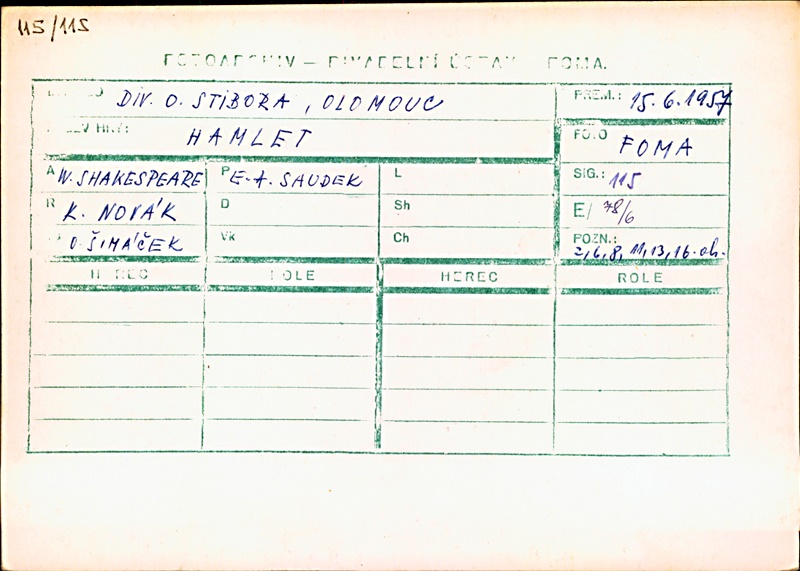 115/115
FOTOARCHIV – DIVADELNÍ ÚSTAV FOMA.
DIV. O. STIBORA, OLOMOUC
PREM.: 15.6.1957
HAMLET
FOTO FOMA
A W. SHAKESPEARE P E. A. SAUDEK L SIG.: 115
R K. NOVÁK D Sh E/ 78/6
O. ŠIMÁČEK Vk Ch POZN.: 2,6,8,11,13,16.ob.
HEREC ROLE HEREC ROLE